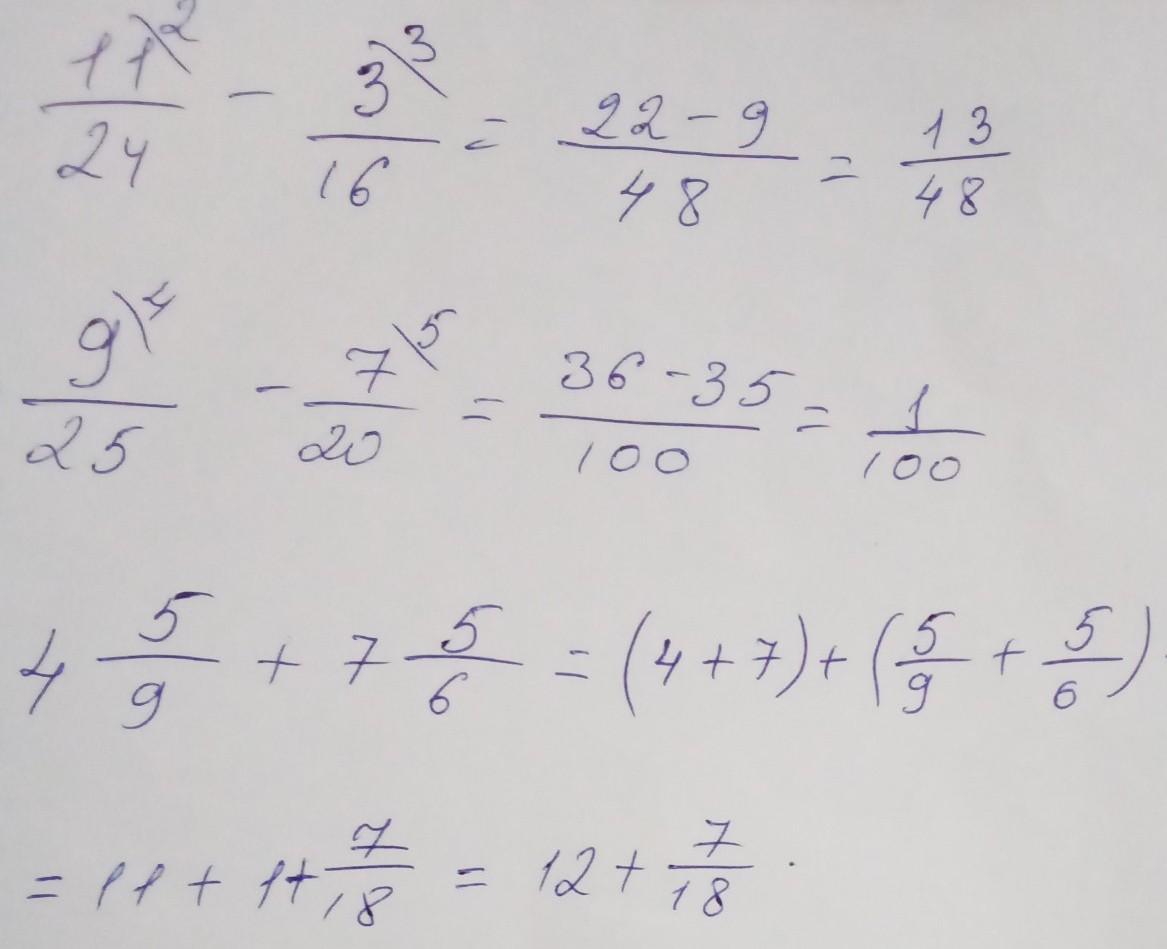 11\2/24 - 3\3/16 = 22-9/48 = 13/48
9\4/25 - 7\5/20 = 36-35/100 = 1/100
4 5/9 + 7 5/6 = (4+7)+(5/9 + 5/6)
= 11 + 1 + 7/18 = 12 + 7/18 .